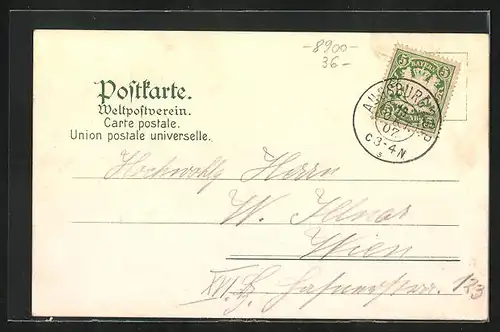 -8900-
36-
5 BAYERN 5
AUGSBURG
07
C 3-4 N
Postkarte.
Weltpostverein.
Carte postale.
Union postale universelle.
Hochwohlg Herrn
W. Illner
Wien
XVI. 123